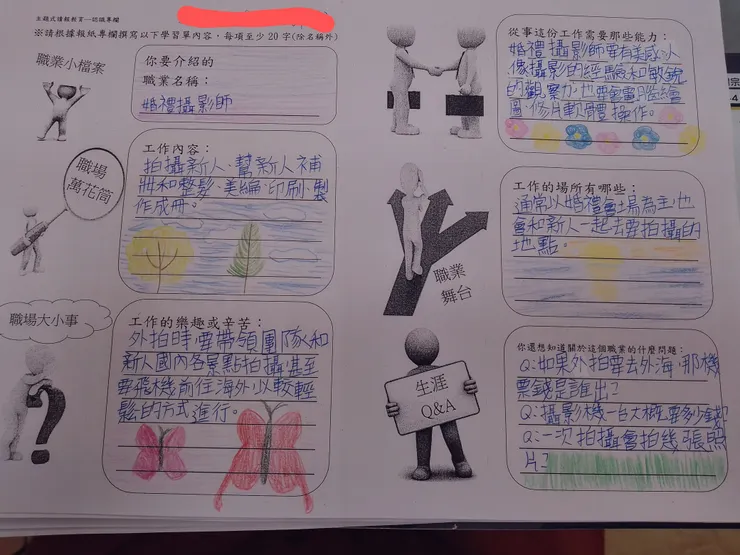 主題式讀報教育—認識專欄
※請根據報紙專欄撰寫以下學習單內容，每項至少 20 字(除名稱外)
職業小檔案
你要介紹的
職業名稱：
婚禮攝影師
職場
萬花筒
工作內容：
拍攝新人、幫新人補
妝和整髮、美編、印刷、製
作成冊。
職場大小事
工作的樂趣或辛苦：
外拍時，要帶領團隊和
新人國內各景點拍攝，甚至
要飛機前往海外以較輕
鬆的方式進行。
從事這份工作需要那些能力：
婚禮攝影師要有美感，人
像攝影的經驗和敏銳
的觀察力，也要會電腦繪
圖、修片軟體操作。
職業
舞台
工作的場所有哪些：
通常以婚禮會場為主，也
會和新人一起去要拍攝的
地點。
生涯
Q&A
你還想知道關於這個職業的什麼問題：
Q:如果外拍要去外海，那機
票錢是誰出？
Q:攝影機一台大概要多少錢？
Q:一次拍攝會拍幾張照
片？